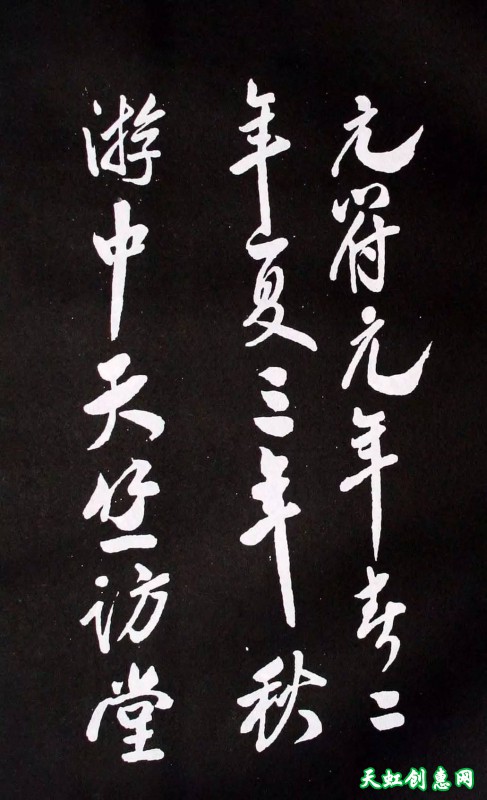 元符元年春二
年夏三年秋
游中天竺访堂
天虹创惠网